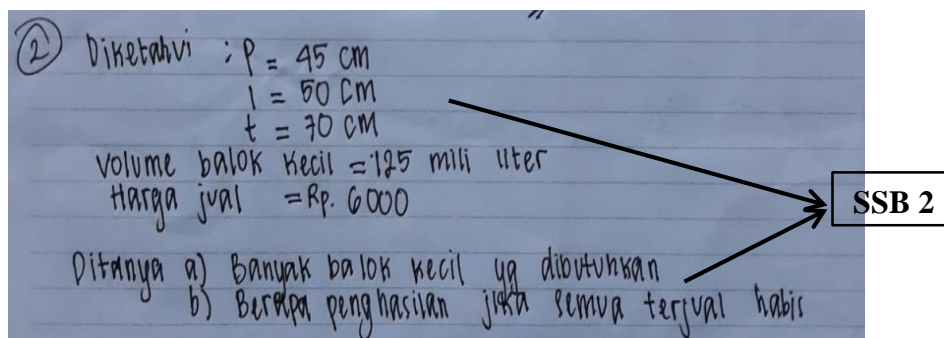 2 Diketahui : P = 45 cm
l = 50 cm
t = 70 cm
Volume balok kecil = 125 mili liter
Harga jual = Rp. 6000
SSB 2
Ditanya a) Banyak balok kecil yg dibutuhkan
b) Berapa penghasilan jika semua terjual habis